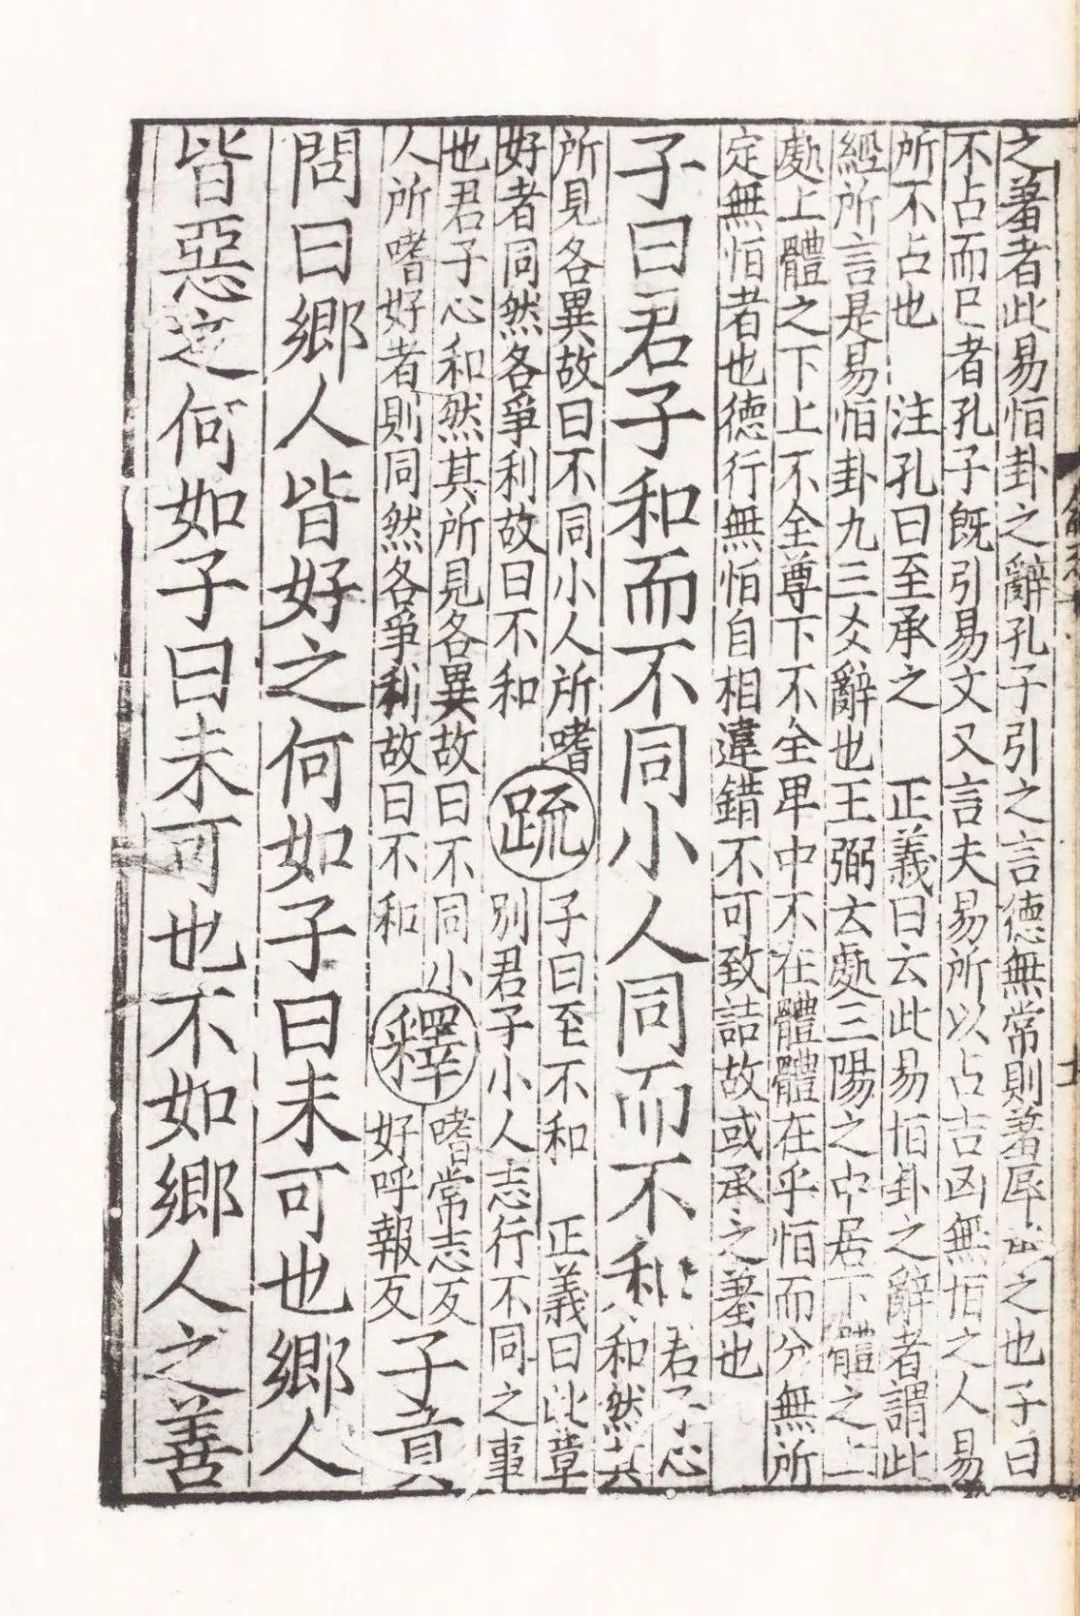 之羞者此易恒卦之辭孔子引之言德無常則羞辱承之也子曰
不占而已者孔子既引易文又言夫易所以占吉凶無恒之人易
所不占也　注孔曰至承之　正義曰云此易恒卦之辭者謂此
經所言是易恒卦九三爻辭也王弼云處三陽之中居下體之上
處上體之下上不全尊下不全卑中不在體體在乎恒而分無所
定無恒者也德行無恒自相違錯不可致詰故或承之羞也
子曰君子和而不同小人同而不和
君子心
和然其
所見各異故曰不同小人所嗜
好者同然各爭利故曰不和
疏
子曰至不和　正義曰此章
別君子小人志行不同之事
也君子心和然其所見各異故曰不同小
人所嗜好者則同然各爭利故曰不和
釋
嗜常志反
好呼報反
子貢
問曰鄉人皆好之何如子曰未可也鄉人
皆惡之何如子曰未可也不如鄉人之善